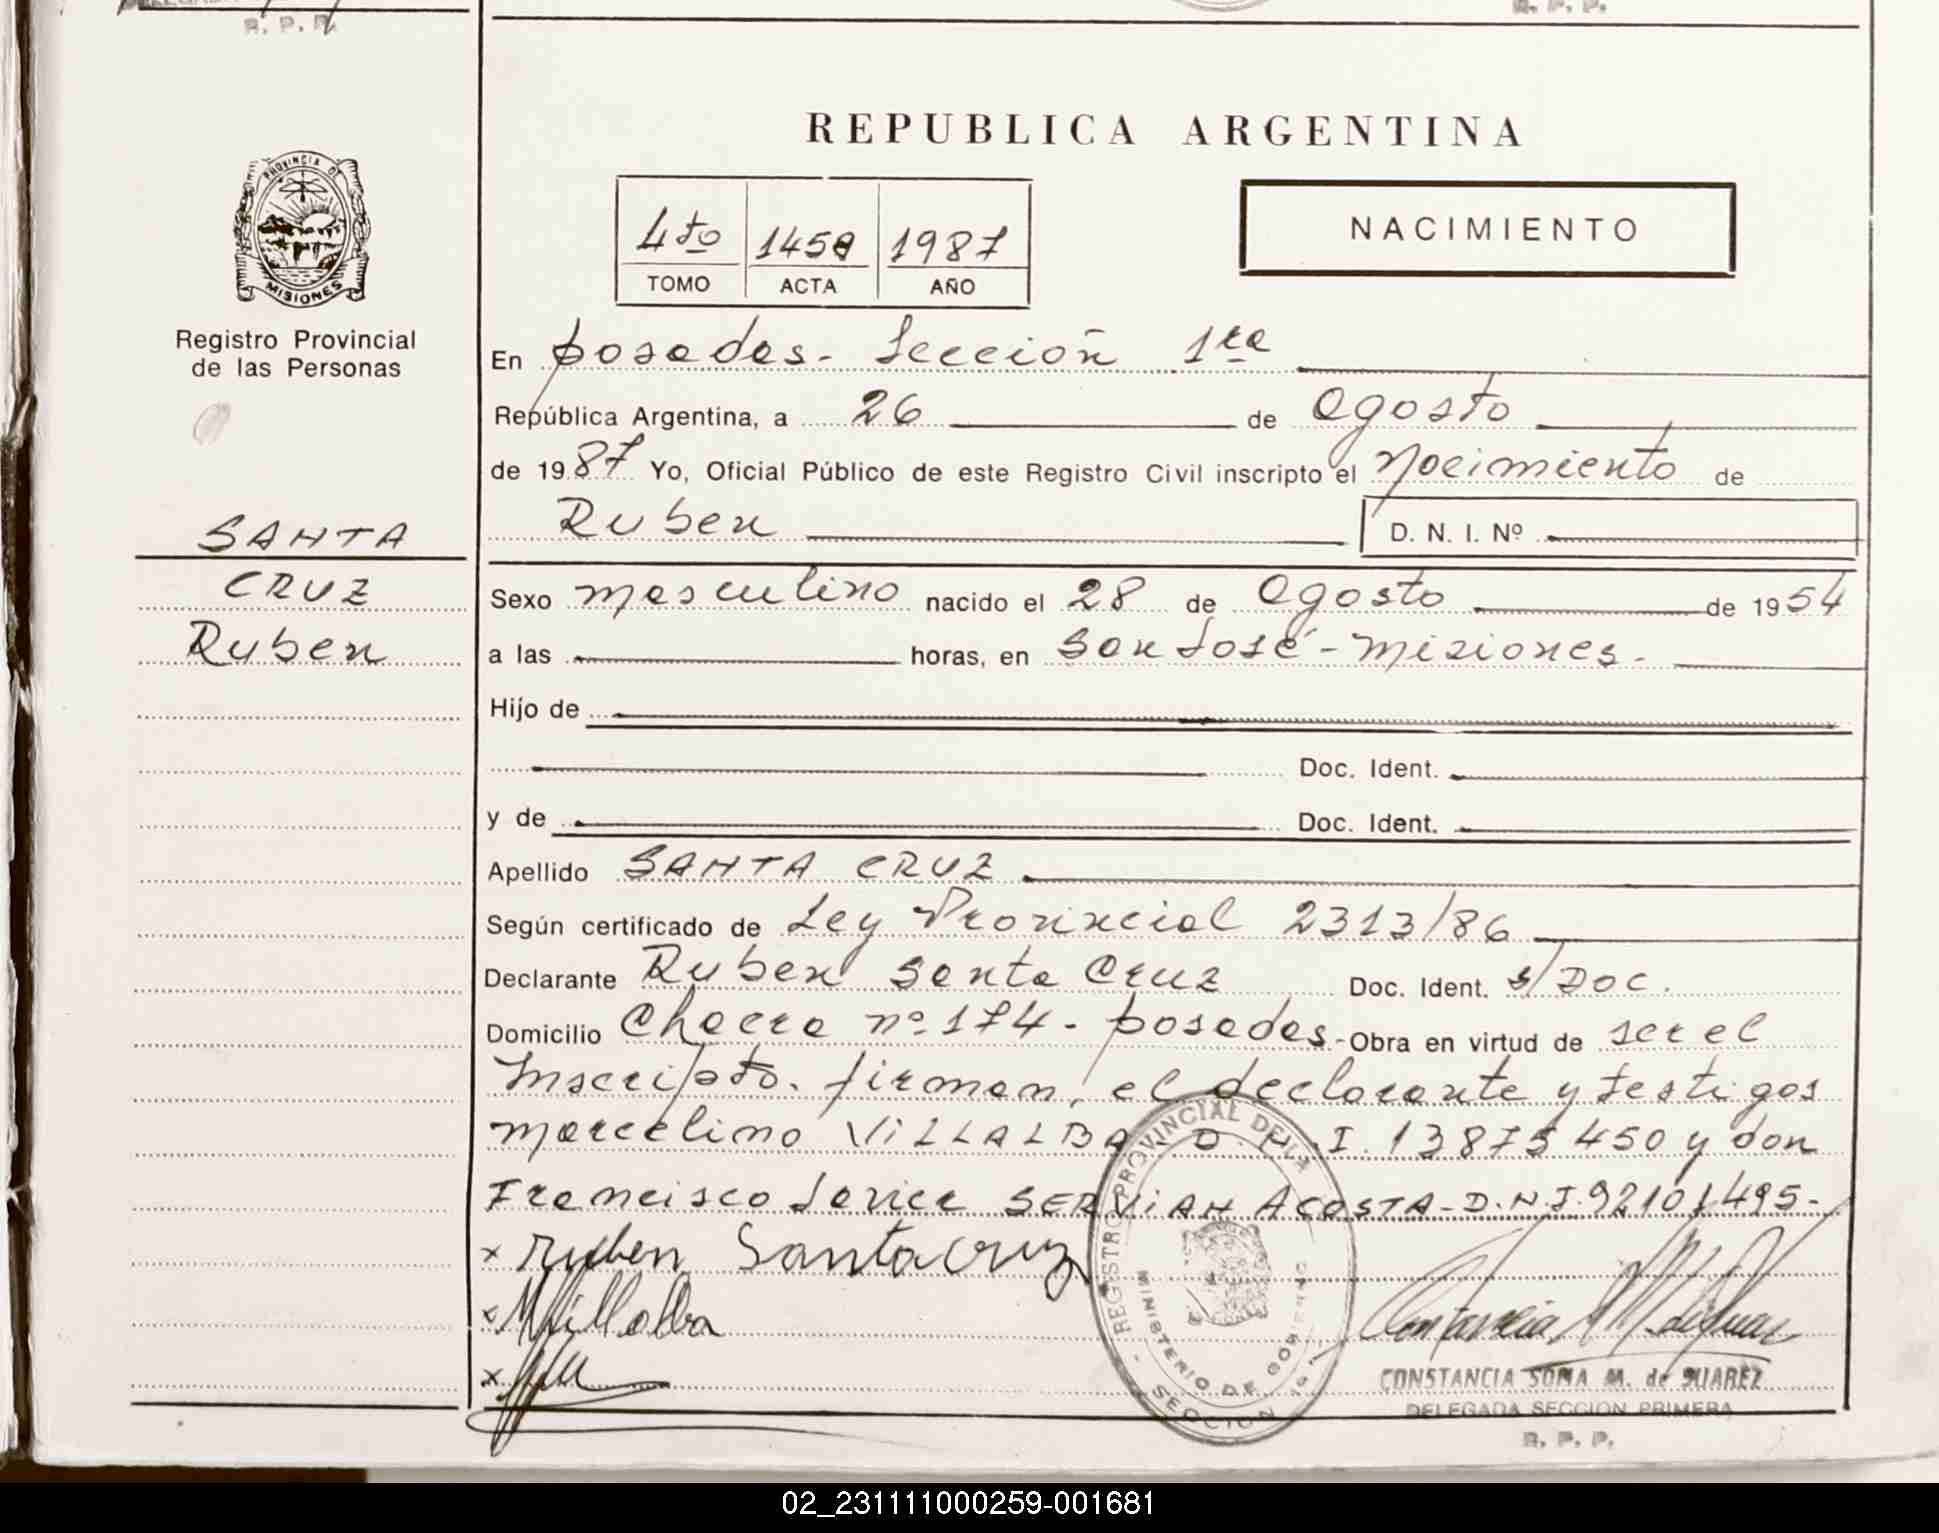 R. P. P.
R. P. P.
REPUBLICA ARGENTINA
PROVINCIA DE
MISIONES
Registro Provincial
de las Personas
4to 1458 1987
TOMO ACTA AÑO
NACIMIENTO
En posadas. Sección 1ra
República Argentina, a 26 de agosto
de 1987 Yo, Oficial Público de este Registro Civil inscripto el Nacimiento de
Ruben D. N. I. Nº
SANTA
CRUZ
Ruben
Sexo masculino nacido el 28 de agosto de 1954
a las horas, en San José - Misiones.
Hijo de
Doc. Ident.
y de Doc. Ident.
Apellido SANTA CRUZ
Según certificado de Ley Provincial 2313/86
Declarante Ruben Santa Cruz Doc. Ident. s/Doc.
Domicilio Chacra nº 174 - posadas.- Obra en virtud de ser el
Inscripto. firman, el declarante y testigos
marcelino VILLALBA D.N.I. 13875450 y don
Francisco Javier SERVIAN ACOSTA - D.N.I. 92101495-
x Ruben Santacruz
x MVillalba
x
REGISTRO PROVINCIAL DE LA
MINISTERIO DE GOBIERNO
SECCION 1ª
CONSTANCIA SONIA M. de SUAREZ
DELEGADA SECCION PRIMERA
R. P. P.
02_231111000259-001681